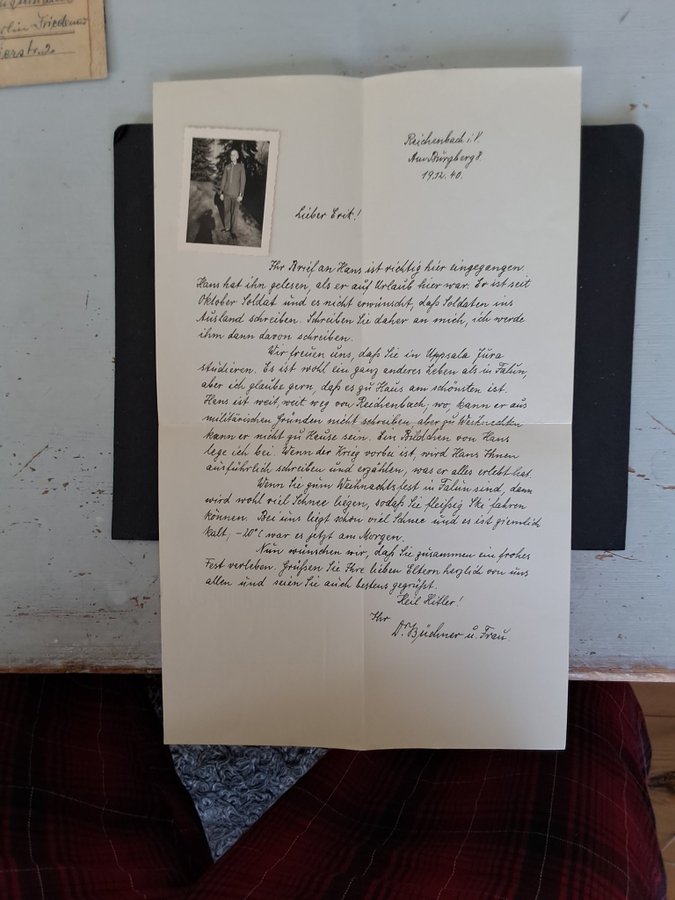 Berlin Friedenau
Reichenbach i. V.
Am Burgberg 8.
19.12.40.
Lieber Erik!
Ihr Brief an Hans ist richtig hier eingegangen.
Hans hat ihn gelesen, als er auf Urlaub hier war. Er ist seit
Oktober Soldat und es nicht erwünscht, daß Soldaten ins
Ausland schreiben. Schreiben Sie daher an mich, ich werde
ihm dann davon schreiben.
Wir freuen uns, daß Sie in Uppsala Jura
studieren. Es ist wohl ein ganz anderes Leben als in Falun,
aber ich glaube gern, daß es zu Haus am schönsten ist.
Hans ist weit, weit weg von Reichenbach; wo, kann er aus
militärischen Gründen nicht schreiben, aber zu Weihnachten
kann er nicht zu Hause sein. Ein Bildchen von Hans
lege ich bei. Wenn der Krieg vorbei ist, wird Hans Ihnen
ausführlich schreiben und erzählen, was er alles erlebt hat.
Wenn Sie zum Weihnachtsfest in Falun sind, dann
wird wohl viel Schnee liegen, sodaß Sie fleißig Ski fahren
können. Bei uns liegt schon viel Schnee und es ist ziemlich
kalt, -20°C war es jetzt am Morgen.
Nun wünschen wir, daß Sie zusammen ein frohes
Fest verleben. Grüßen Sie Ihre lieben Eltern herzlich von uns
allen und seien Sie auch bestens gegrüßt.
Heil Hitler!
Ihr
Dr. Büchner u. Frau.